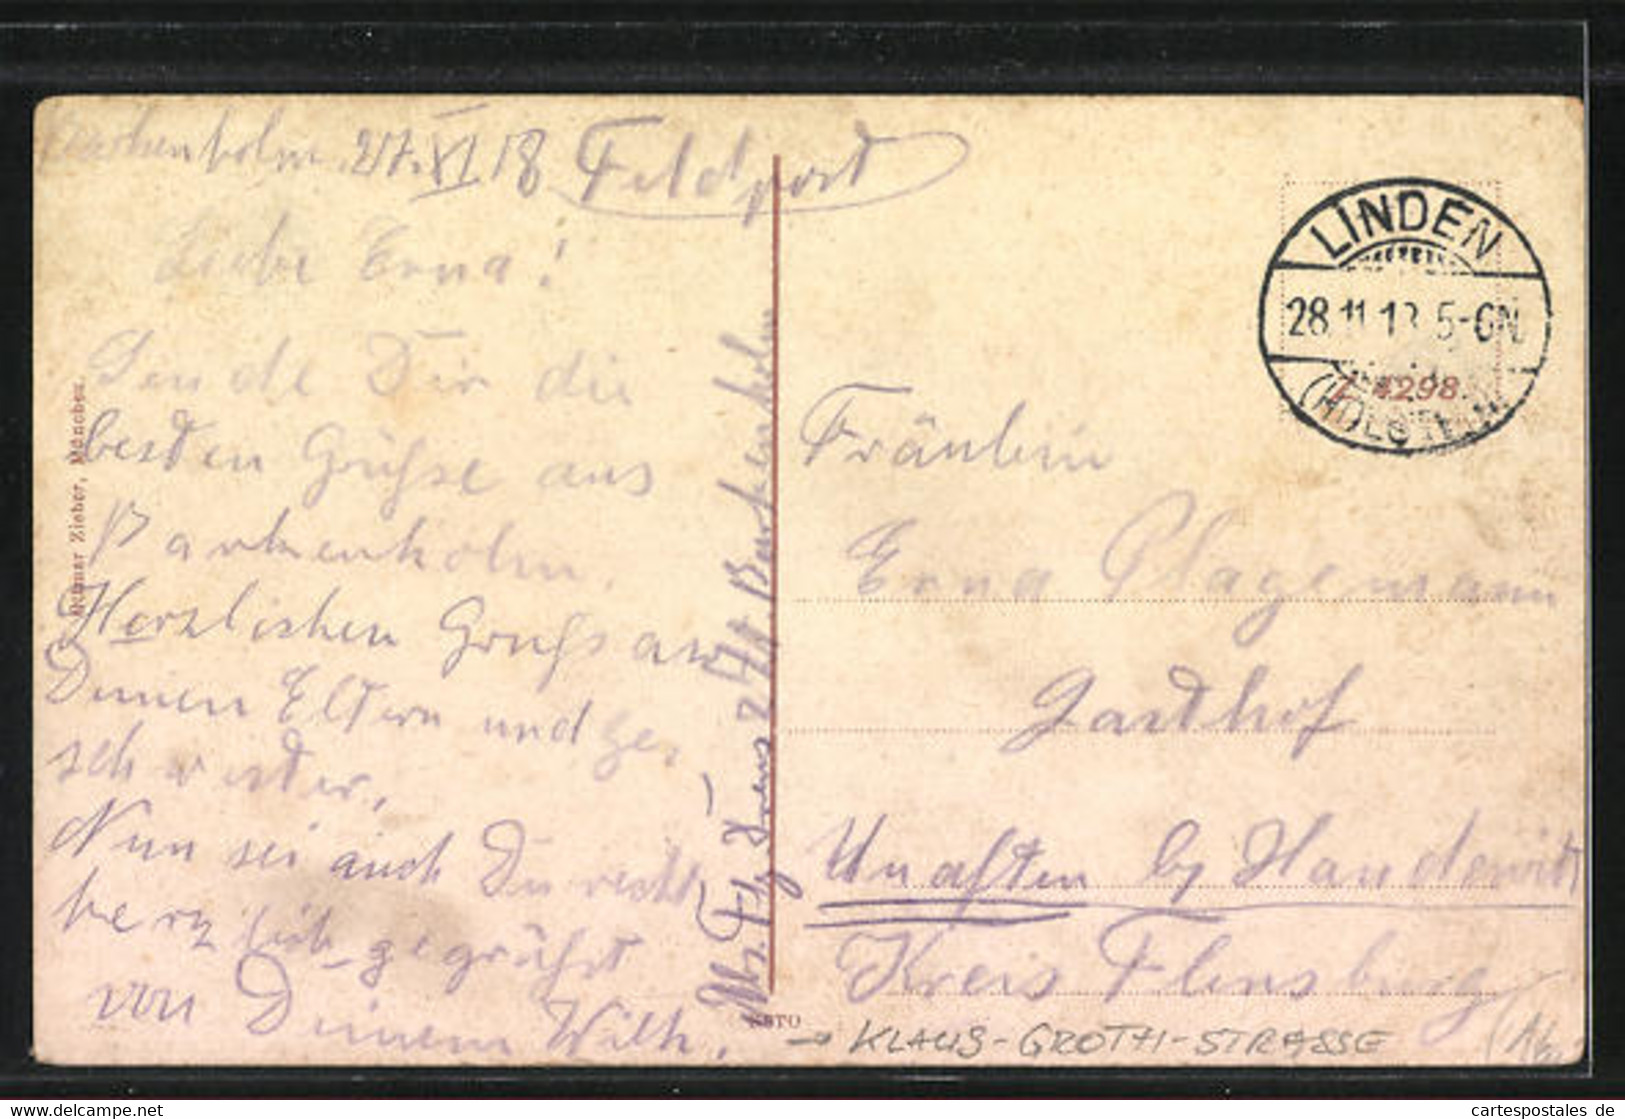 Barkenholm, 27.XI.18 Feldpost
Liebe Erna!
Sende Dir die
besten Grüsse aus
Barkenholm.
Herzlichen Gruß an
Deinen Eltern und ge,
schwister,
Nun sei auch Du recht
herzlich gegrüßt
von Deinem Wilh.
Abs. Flg. Drews z. Zt. Barkenholm
Ottmar Zieher, München.
LINDEN
28.11.18.5-6N.
(HOLSTEIN)
Z 4298.
Fräulein
Erna Plagemann
Gasthof
Unaften by Handewitt
Kreis Flensburg
KBTO
→ KLAUS-GROTH-STRASSE
cartespostales de